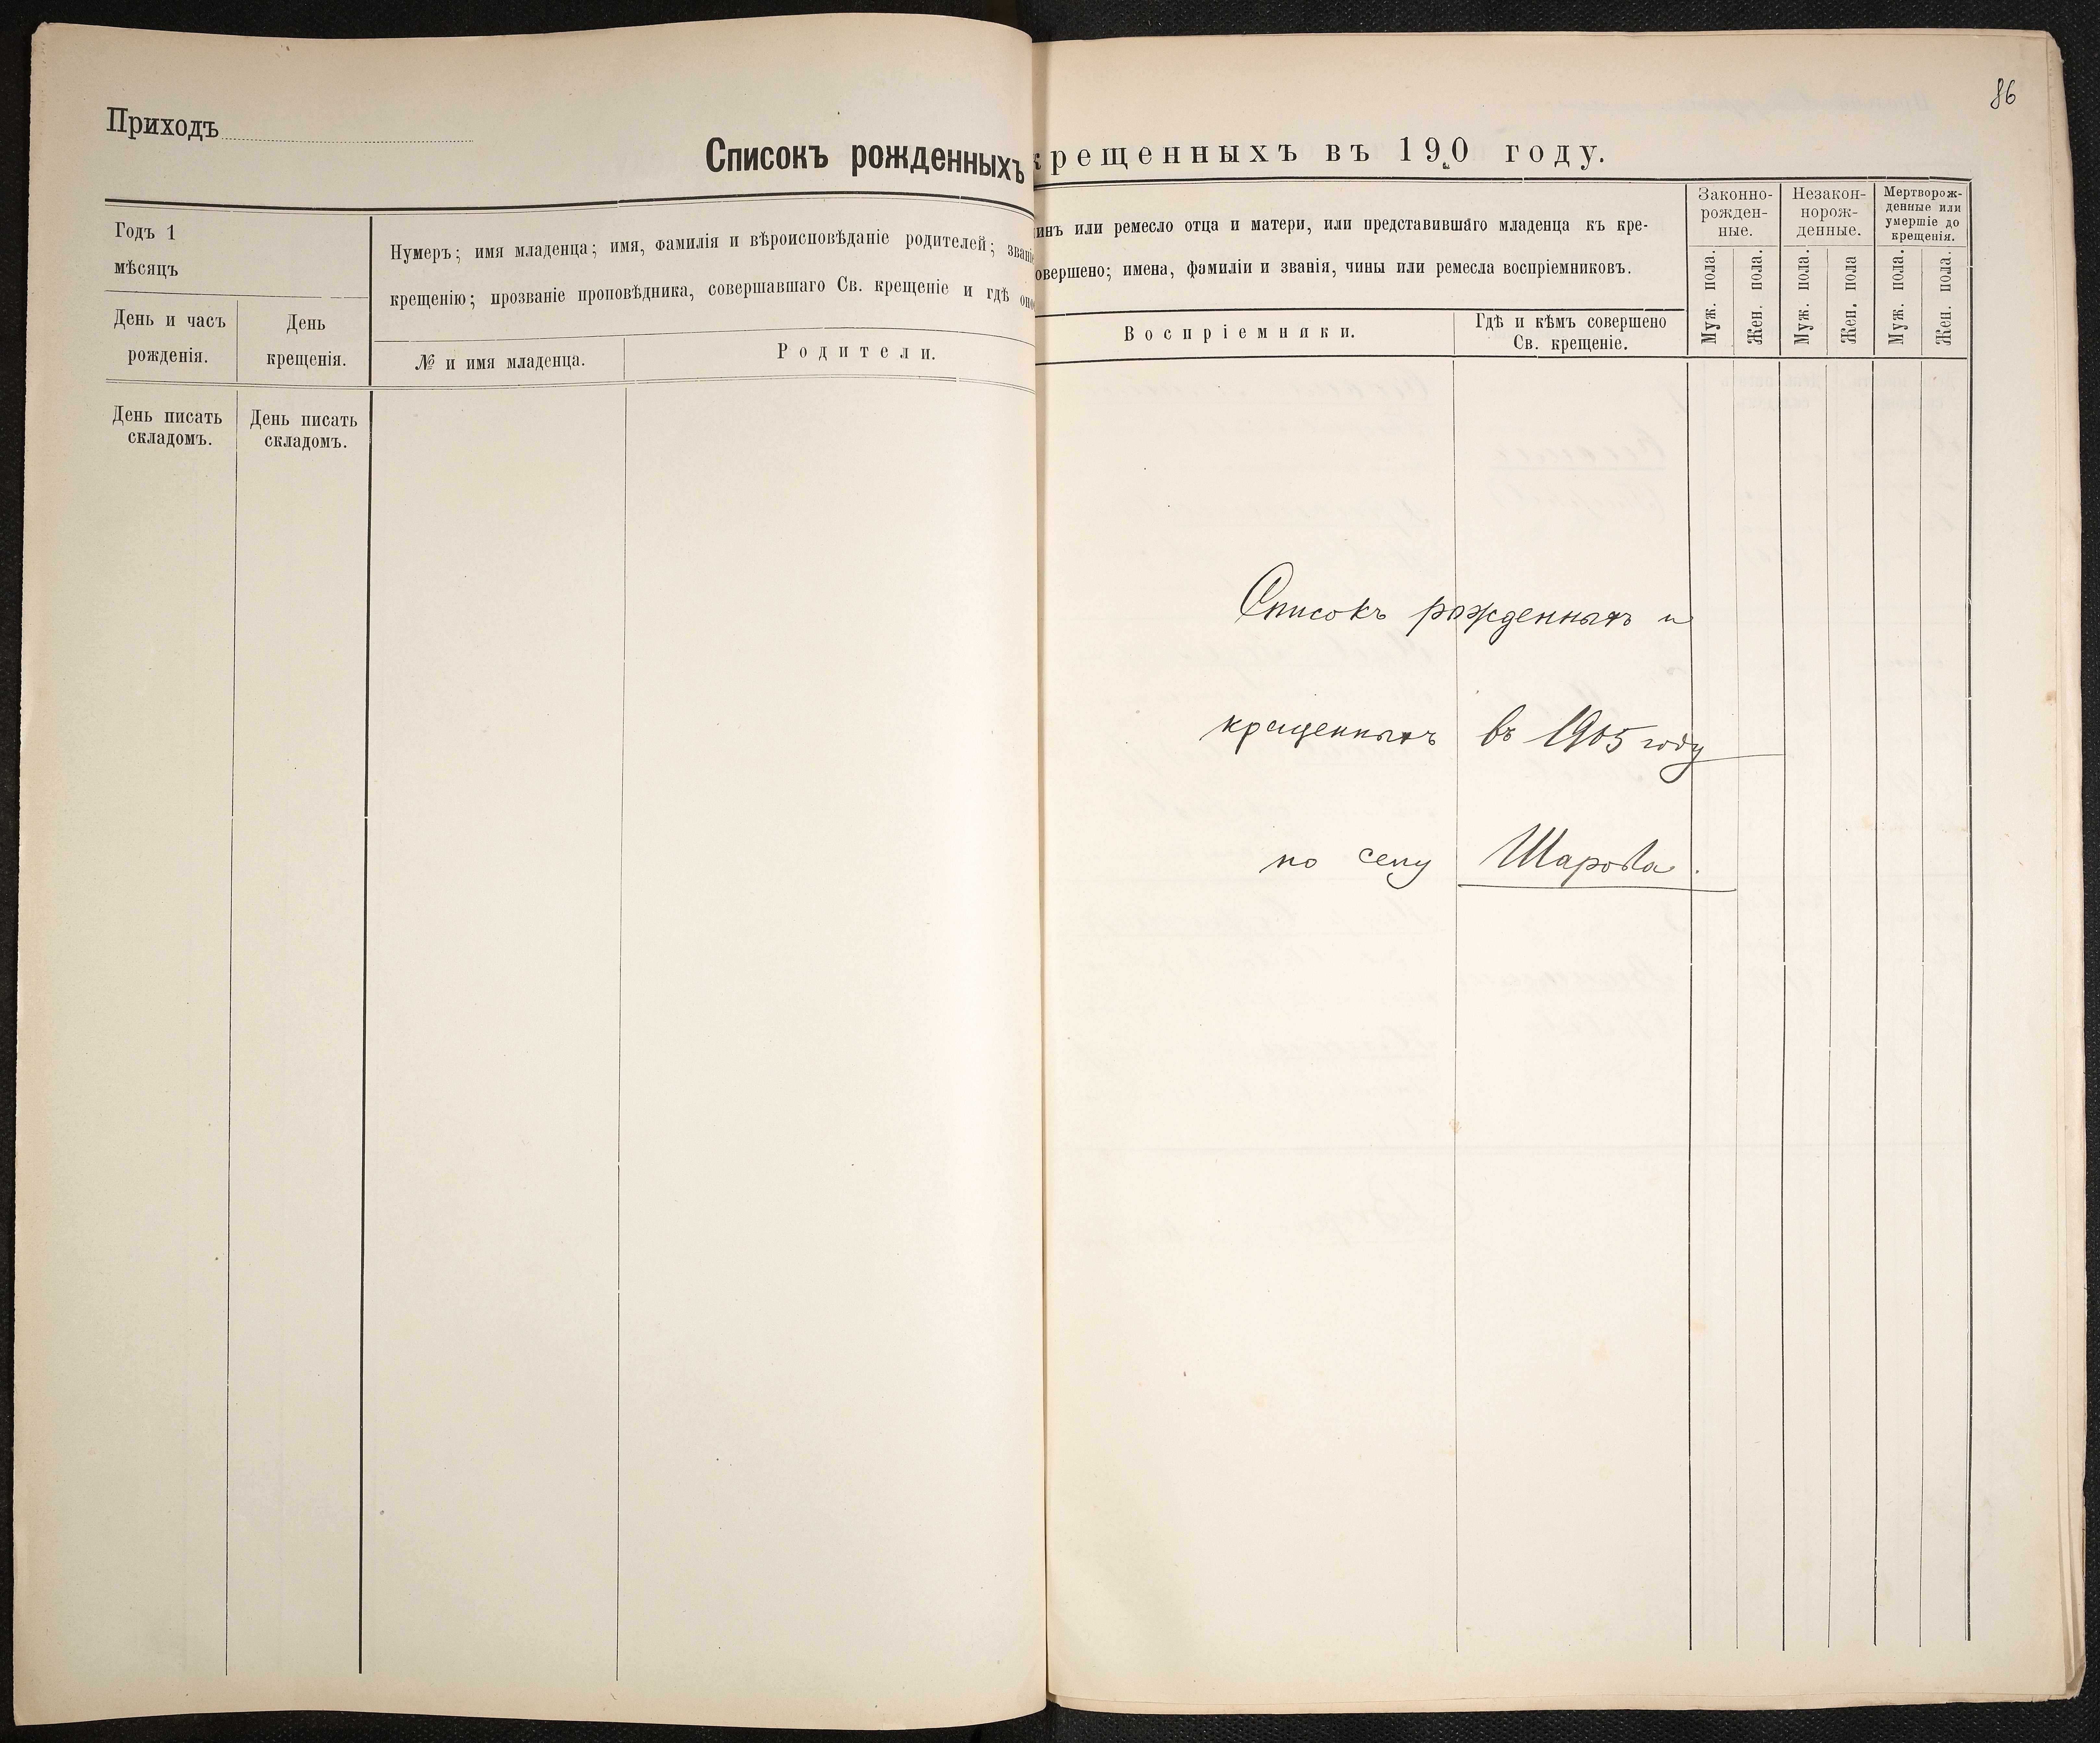 86
Приходъ
Списокъ рожденныхъ крещенныхъ въ 190 году.
Годъ 1
мѣсяцъ
День и часъ
рожденія.
День
крещенія.
Нумеръ; имя младенца; имя, фамилія и вѣроисповѣданіе родителей; званіе
крещенію; прозваніе проповѣдника, совершавшаго Св. крещеніе и гдѣ оно
№ и имя младенца.
Родители.
День писать
складомъ.
День писать
складомъ.
инъ или ремесло отца и матери, или представившаго младенца къ кре-
овершено; имена, фамиліи и званія, чины или ремесла воспріемниковъ.
Воспріемники.
Гдѣ и кѣмъ совершено
Св. крещеніе.
Законно-
рожден-
ные.
Незакон-
норож-
денные.
Мертворож-
денные или
умершіе до
крещенія.
Муж. пола.
Жен. пола.
Муж. пола.
Жен. пола
Муж. пола.
Жен. пола.
Списокъ рожденныхъ и
крещенныхъ въ 1905 году
по селу Шарова.